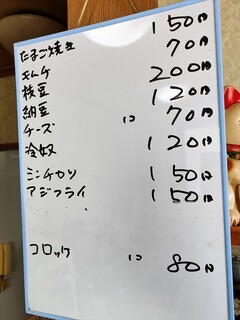 たまご焼き 150円
キムチ 70円
枝豆 200円
納豆 120円
チーズ 1コ 70円
冷奴 120円
ミンチカツ 150円
アジフライ 150円
コロッケ 1コ 80円